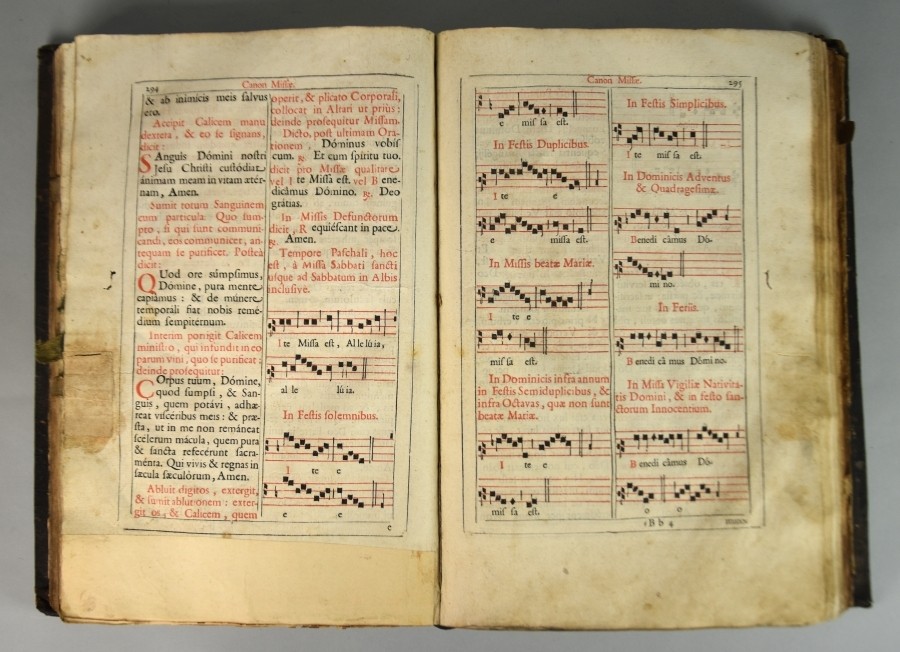 294
Canon Missæ.
& ab inimicis meis salvus
ero.
Accipit Calicem manu
dextera, & eo se signans,
dicit:
SAnguis Dómini nostri
Jesu Christi custódiat
ánimam meam in vitam ætér-
nam, Amen.
Sumit totum Sanguinem
cum particula. Quo sum-
pto, si qui sunt communi-
candi, eos communicet, an-
tequam se purificet. Postea
dicit:
QUod ore súmpsimus,
Dómine, pura mente
capiámus: & de múnere
temporáli fiat nobis remé-
dium sempiternum.
Interim porrigit Calicem
ministro, qui infundit in eo
parum vini, quo se purificat;
deinde prosequitur:
COrpus tuum, Dómine,
quod sumpsi, & San-
guis, quem potávi, adhæ-
reat viscéribus meis: & præ-
sta, ut in me non remáneat
scelerum mácula, quem pura
& sancta refecérunt sacra-
ménta. Qui vivis & regnas in
sæcula sæculórum, Amen.
Abluit digitos, extergit,
& sumit ablutionem: exter-
git os, & Calicem, quem
operit, & plicato Corporali,
collocat in Altari ut prius:
deinde prosequitur Missam.
Dicto, post ultimam Ora-
tionem, Dóminus vobis
cum. ℟. Et cum spíritu tuo.
dicit pro Missæ qualitate
vel Ite Missa est. vel Bene-
dicámus Dómino. ℟. Deo
grátias.
In Missis Defunctorum
dicit, Requiéscant in pace.
℟. Amen.
Tempore Paschali, hoc
est, à Missa Sabbati sancti
usque ad Sabbatum in Albis
inclusive.
Ite Missa est, Alle lú ia,
al le lú ia.
In Festis solemnibus.
I te e
e e
e
Canon Missæ.
295
e mis sa est.
In Festis Duplicibus.
I te
e missa est.
In Missis beatæ Mariæ.
I te e
mis sa est.
In Dominicis infra annum
in Festis Semiduplicibus, &
infra Octavas, quæ non sunt
beatæ Mariæ.
I te e
mis sa est.
In Festis Simplicibus.
I te mis sa est.
In Dominicis Adventus
& Quadragesimæ.
Benedi cámus Dó-
mi no.
In Feriis.
B enedi cá mus Dómi no.
In Missa Vigiliæ Nativita-
tis Domini, & in festo san-
ctorum Innocentium.
B enedi cámus Dó-
o o
Bb 4